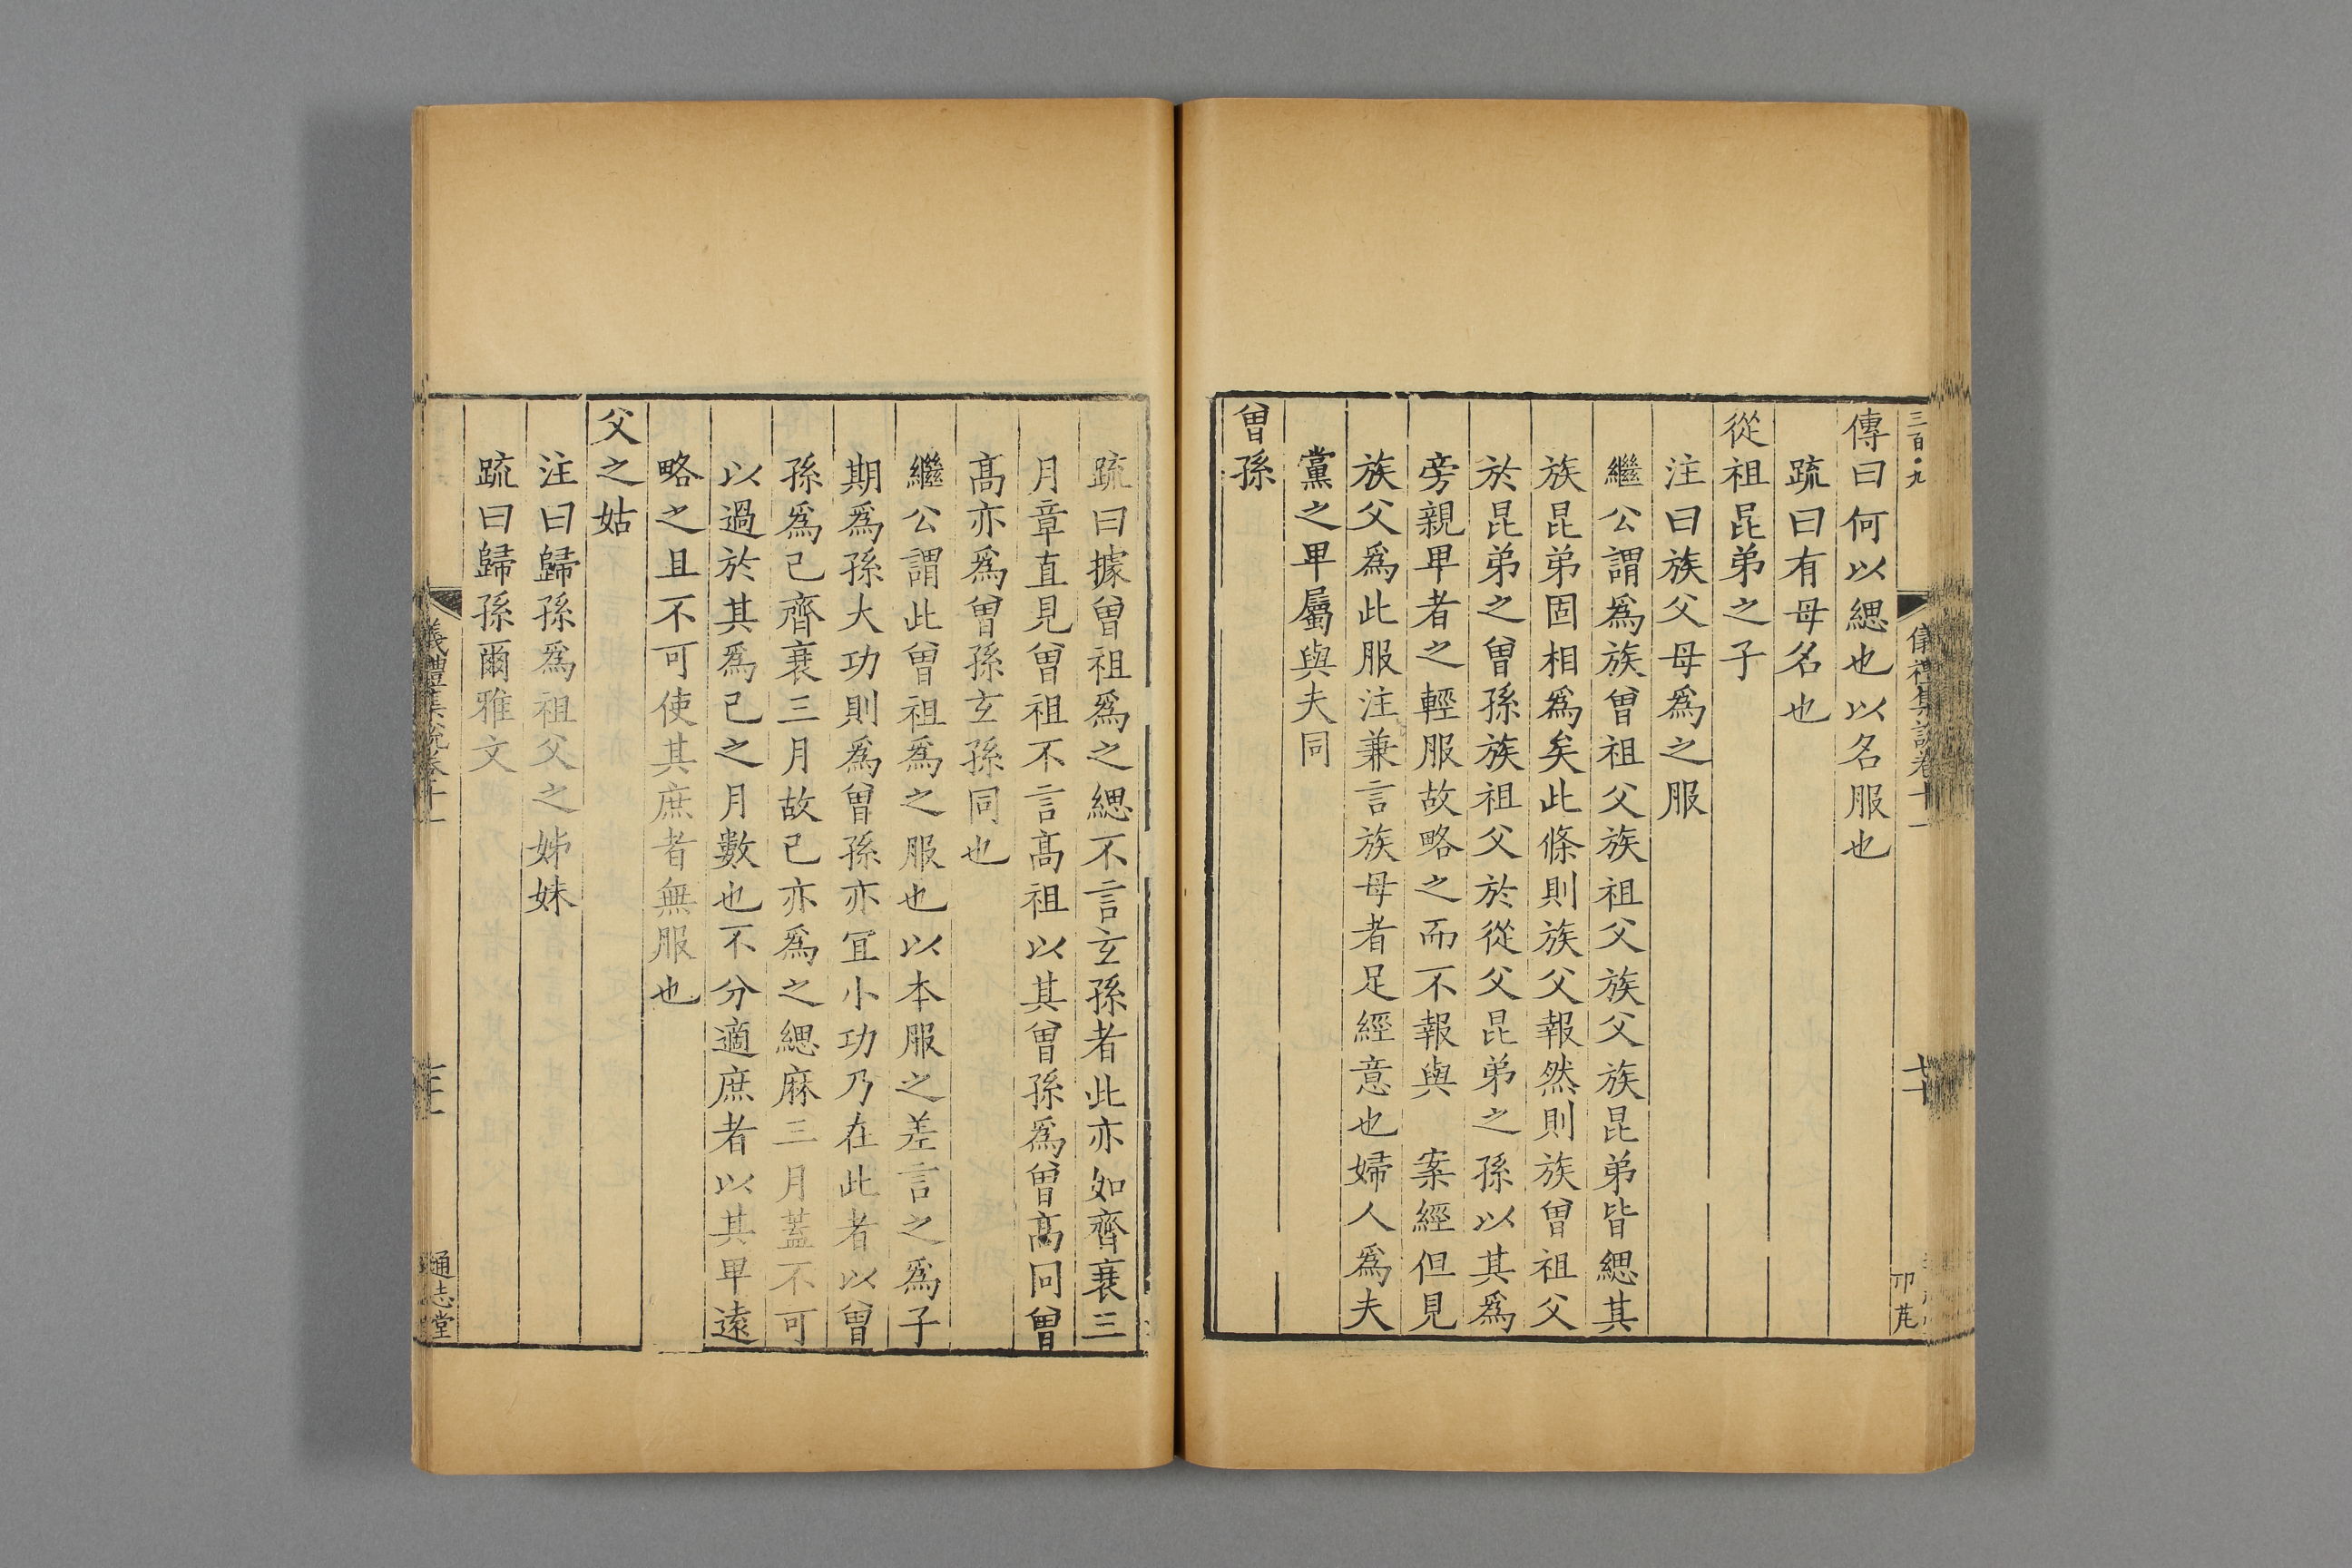 三百九
傳曰何以緦也以名服也
疏曰有母名也
從祖昆弟之子
注曰族父母爲之服
繼公謂爲族曾祖父族祖父族父族昆弟皆緦其
族昆弟固相爲矣此條則族父報然則族曾祖父
於昆弟之曾孫族祖父於從父昆弟之孫以其爲
旁親卑者之輕服故略之而不報與 案經但見
族父爲此服注兼言族母者足經意也婦人爲夫
黨之卑屬與夫同
曾孫
疏曰據曾祖爲之緦不言玄孫者此亦如齊衰三
月章直見曾祖不言髙祖以其曾孫爲曾髙同曾
髙亦爲曾孫玄孫同也
繼公謂此曾祖爲之服也以本服之差言之爲子
期爲孫大功則爲曾孫亦宜小功乃在此者以曾
孫爲己齊衰三月故己亦爲之緦麻三月蓋不可
以過於其爲己之月數也不分適庶者以其卑遠
略之且不可使其庶者無服也
父之姑
注曰歸孫爲祖父之姊妹
疏曰歸孫爾雅文
儀禮集說卷十一
通志堂